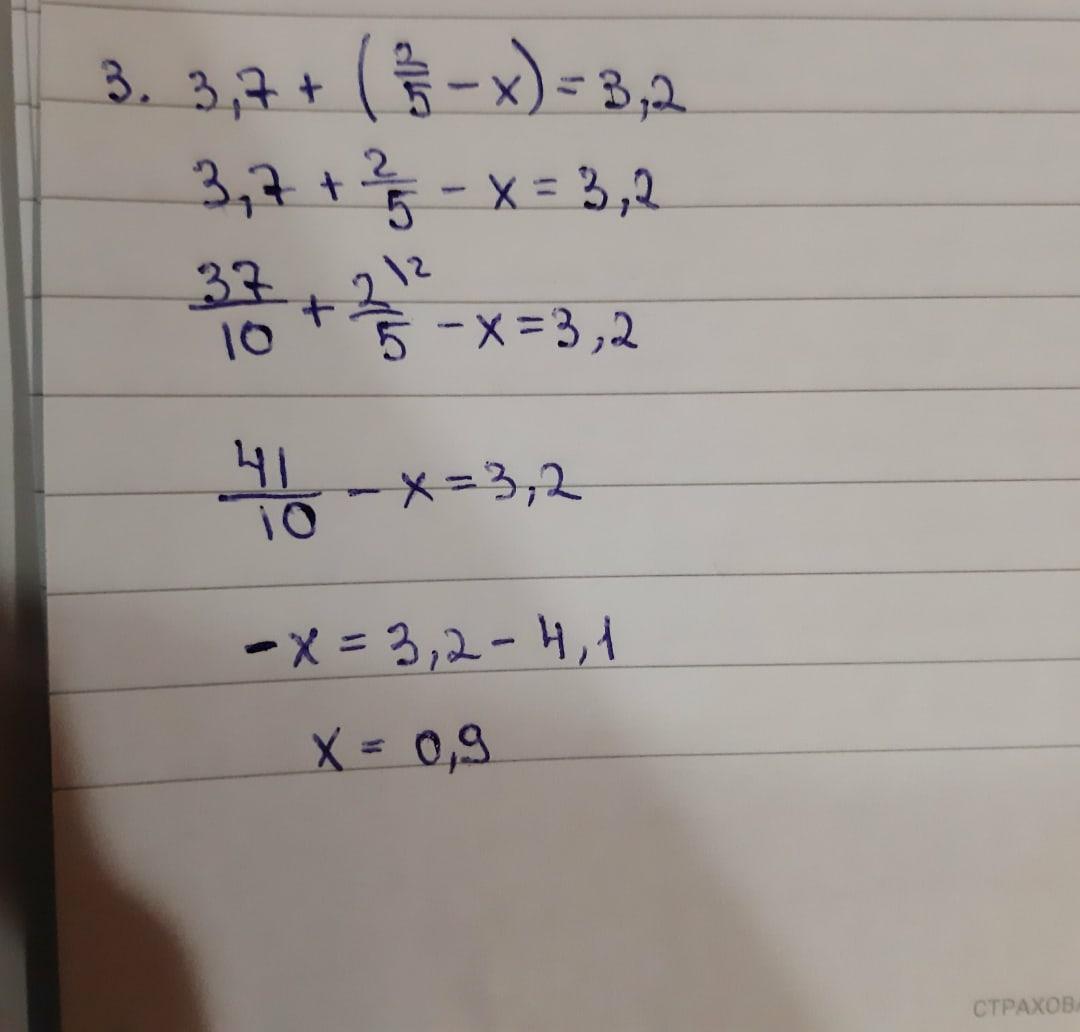 3. 3,7 + (2/5 - x) = 3,2
3,7 + 2/5 - x = 3,2
37/10 + 2\2/5 - x = 3,2
41/10 - x = 3,2
-x = 3,2 - 4,1
x = 0,9